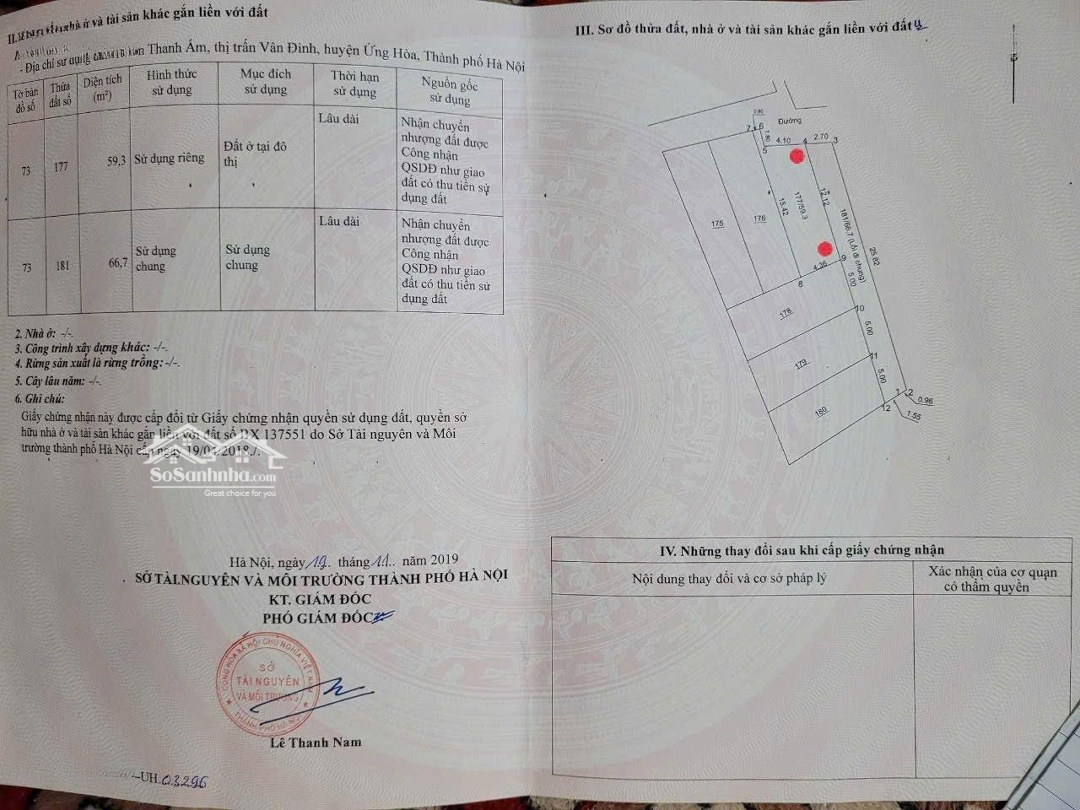 nhà ở và tài sản khác gắn liền với đất
- Địa chỉ sử dụng Thanh Ấm, thị trấn Vân Đình, huyện Ứng Hòa, Thành phố Hà Nội
Tờ bản đồ số
Thửa đất số
Diện tích (m²)
Hình thức sử dụng
Mục đích sử dụng
Thời hạn sử dụng
Nguồn gốc sử dụng
73
177
59,3
Sử dụng riêng
Đất ở tại đô thị
Lâu dài
Nhận chuyển
nhượng đất được
Công nhận
QSDĐ như giao
đất có thu tiền sử
dụng đất
73
181
66,7
Sử dụng chung
Sử dụng chung
Lâu dài
Nhận chuyển
nhượng đất được
Công nhận
QSDĐ như giao
đất có thu tiền sử
dụng đất
2. Nhà ở: -/-.
3. Công trình xây dựng khác: -/-.
4. Rừng sản xuất là rừng trồng: -/-.
5. Cây lâu năm: -/-.
6. Ghi chú:
Giấy chứng nhận này được cấp đổi từ Giấy chứng nhận quyền sử dụng đất, quyền sở
hữu nhà ở và tài sản khác gắn liền với đất số 137551 do Sở Tài nguyên và Môi
trường thành phố Hà Nội cấp ngày
SoSanhnha.com
Great choice for you
Hà Nội, ngày 19 tháng 11 năm 2019
SỞ TÀI NGUYÊN VÀ MÔI TRƯỜNG THÀNH PHỐ HÀ NỘI
KT. GIÁM ĐỐC
PHÓ GIÁM ĐỐC
CỘNG HÒA XÃ HỘI CHỦ NGHĨA VIỆT NAM
SỞ
TÀI NGUYÊN
VÀ MÔI TRƯỜNG
THÀNH PHỐ HÀ NỘI
Lê Thanh Nam
UH.03296
III. Sơ đồ thửa đất, nhà ở và tài sản khác gắn liền với đất
Đường
0.80
7
6
1.80
5
4.10
4
2.70
3
175
176
15.42
177/59.3
12.12
181/66.7 (Lối đi chung)
25.82
4.36
9
8
5.00
178
10
5.00
179
11
5.00
180
12
1
2
0.96
1.55
IV. Những thay đổi sau khi cấp giấy chứng nhận
Nội dung thay đổi và cơ sở pháp lý
Xác nhận của cơ quan
có thẩm quyền